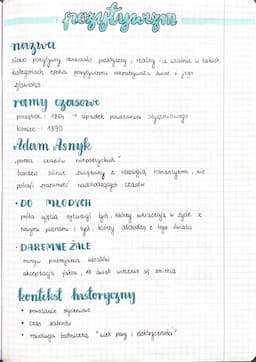 pozytywizm
nazwa
słowo pozytywny oznaczało praktyczny, realny - a właśnie w takich
kategoriach epoka pozytywizmu rozpatrywała świat i jego
zjawiska.
ramy czasowe
początek: 1864 → upadek powstania styczniowego
koniec: 1890
Adam Asnyk
„poeta czasów niepoetyckich"
bardzo silnie związany z ideologią romantyzmu, nie
potrafi zrozumieć nadchodzących czasów
· DO MŁODYCH
próba ujęcia sytuacji tych, którzy wkraczają w życie z
nowymi planami i tych, którzy odchodzą z tego świata
· DAREMNE ŻALE
motyw przemijania ideałów
akceptacja faktu, że świat wiecznie się zmienia
kontekst historyczny
• powstanie styczniowe
• czas zaborów
• rewolucja techniczna "wiek pary i elektryczności"